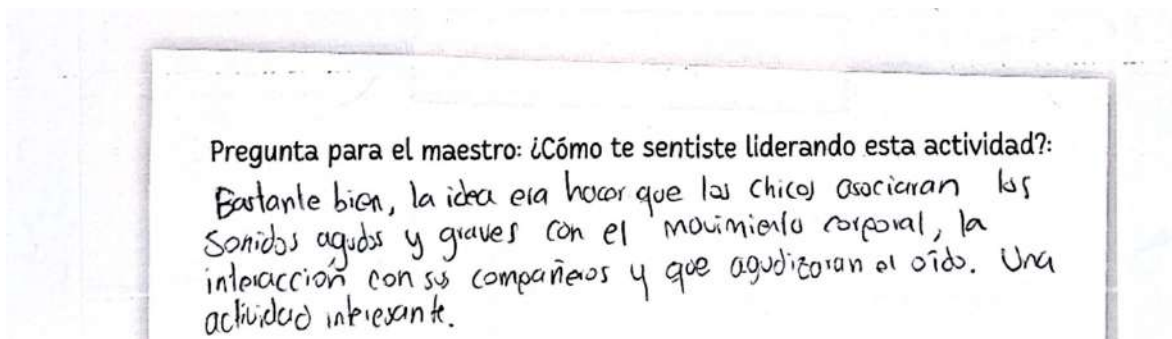 Pregunta para el maestro: ¿Cómo te sentiste liderando esta actividad?:
Bastante bien, la idea era hacer que los chicos asociaran los
sonidos agudos y graves con el movimiento corporal, la
interacción con sus compañeros y que agudizaran el oído. Una
actividad interesante.